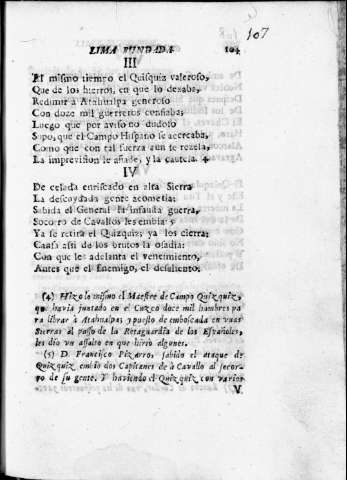 107
LIMA FUNDADA 104
III
Al mismo tiempo el Quisquiz valeroso,
Que de los hierros, en que lo dexaba,
Redimir à Atahualpa generoso
Con doze mil guerreros confiaba;
Luego que por aviso no dudoso
Supo, que el Campo Hispano se acercaba,
Como que con tal fuerza aun se rezela,
La imprevision le añade, y la cautela. 4
IV
De celada enriscado en alta Sierra
La descuydada gente acometia:
Sabida el General la infausta guerra,
Socorro de Cavallos les embia: 5
Ya se retira el Quizquiz; ya los cierra;
Causa assi de los brutos la osadia:
Con que les adelanta el vencimiento,
Antes que el Enemigo, el desaliento.
(4) Hizo lo mismo el Maestre de Campo Quizquiz,
que havia juntado en el Cuzco doce mil hombres pa
ra librar à Atahualpa; y puesto de emboscada en unas
Sierras al passo de la Retaguardia de los Españoles,
les dio un assalto en que hirio algunos.
(5) D. Francisco Pizarro, sabido el ataque de
Quizquiz embio dos Capitanes de à Cavallo al socor-
ro de su gente. Y haviendo el Quizquiz con varios
V.